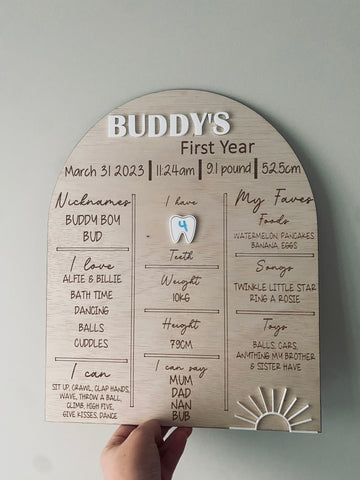 BUDDY'S
First Year
March 31 2023 | 11:24am | 9.1 pound | 52.5cm
Nicknames
BUDDY BOY
BUD
I love
ALFIE & BILLIE
BATH TIME
DANCING
BALLS
CUDDLES
I can
SIT UP, CRAWL, CLAP HANDS,
WAVE, THROW A BALL,
CLIMB, HIGH FIVE,
GIVE KISSES, DANCE
I have
4
Teeth
Weight
10KG
Height
79CM
I can say
MUM
DAD
NAN
BUB
My Faves
Foods
WATERMELON, PANCAKES
BANANA, EGGS
Songs
TWINKLE LITTLE STAR
RING A ROSIE
Toys
BALLS, CARS,
ANYTHING MY BROTHER
& SISTER HAVE